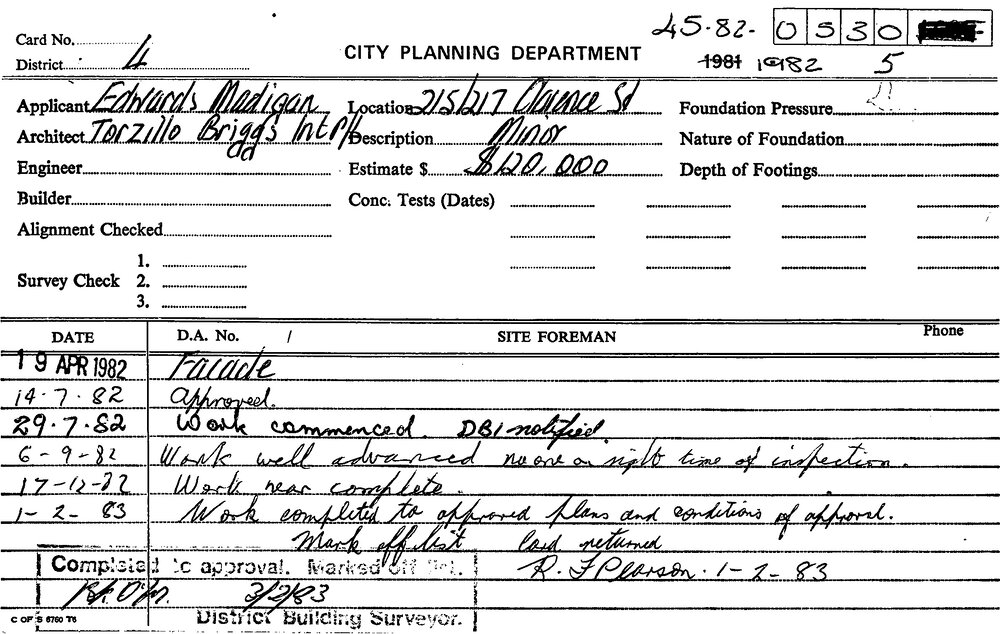 45·82- 0530
Card No.
District 4
CITY PLANNING DEPARTMENT
1981 1982 5
Applicant Edwards Madigan Location 215/217 Clarence St Foundation Pressure
Architect Torzillo Briggs Int P/L Description Minor Nature of Foundation
Engineer Estimate $ $120,000 Depth of Footings
Builder Conc. Tests (Dates)
Alignment Checked
1.
Survey Check 2.
3.
DATE D.A. No. / SITE FOREMAN Phone
19 APR 1982 Facade
14-7·82 Approved.
29·7·82 Work commenced. DBI notified.
6-9-82 Work well advanced no one on site time of inspection.
17-12-82 Work near complete.
1-2-83 Work completed to approved plans and conditions of approval.
Mark off list Card returned
R. F Pearson. 1-2-83
Completed to approval. Marked off list.
3/2/83
District Building Surveyor.
C OF S 6760 T6